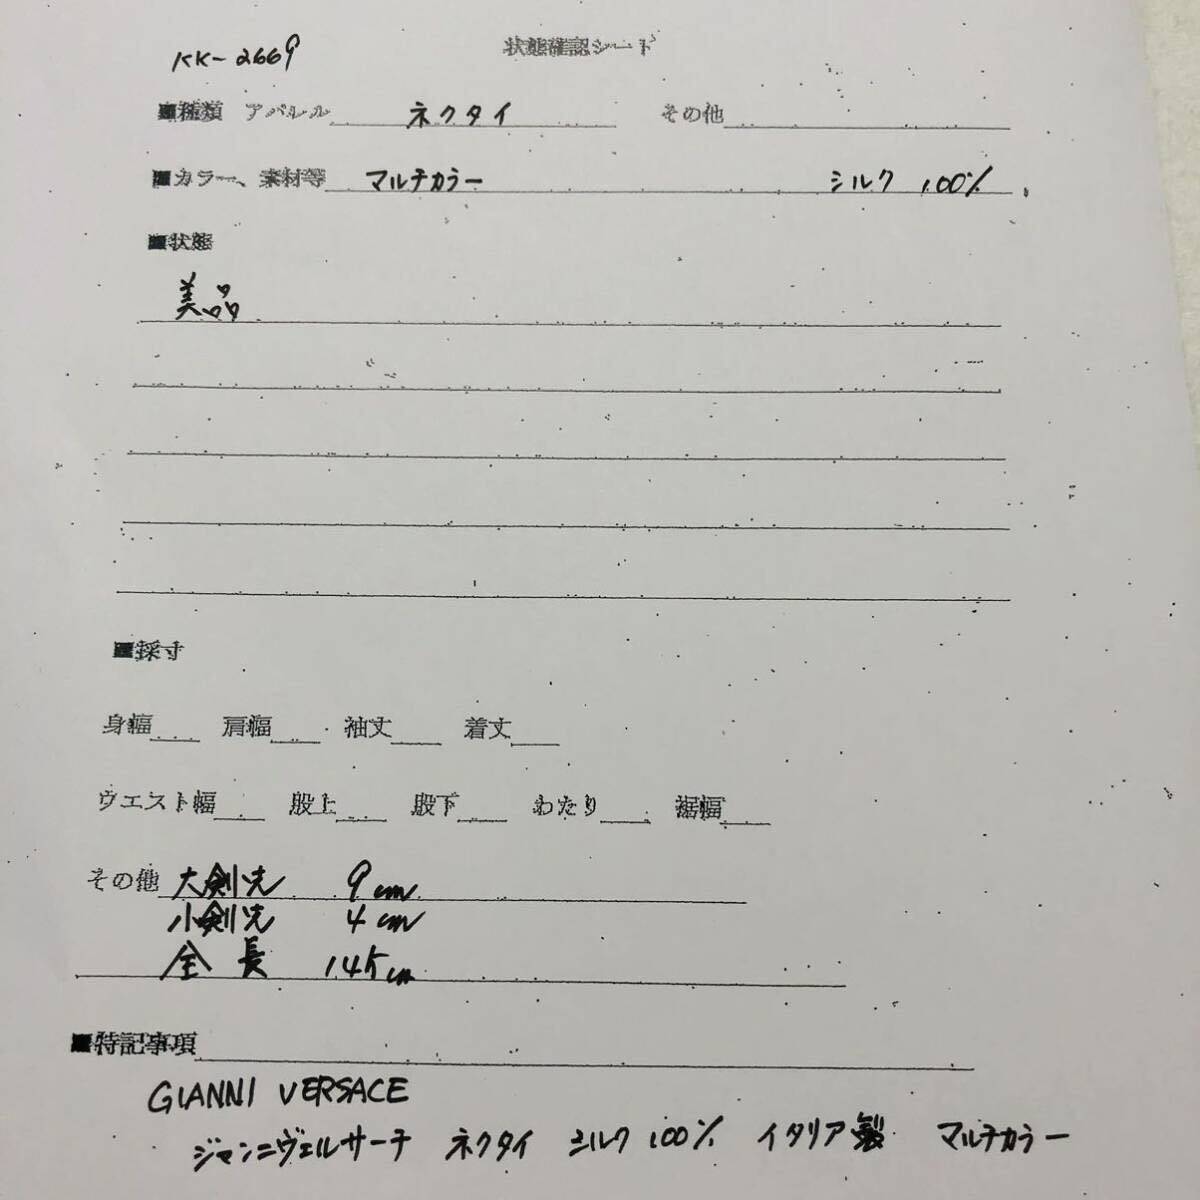 KK-2669
状態確認シート
■種類 アパレル ネクタイ その他
■カラー、素材等 マルチカラー シルク 100%
■状態
美品
■採寸
身幅 肩幅 袖丈 着丈
ウエスト幅 股上 股下 わたり 裾幅
その他 大剣先 9cm
小剣先 4cm
全長 145cm
■特記事項
GIANNI VERSACE
ジャンニヴェルサーチ ネクタイ シルク100% イタリア製 マルチカラー